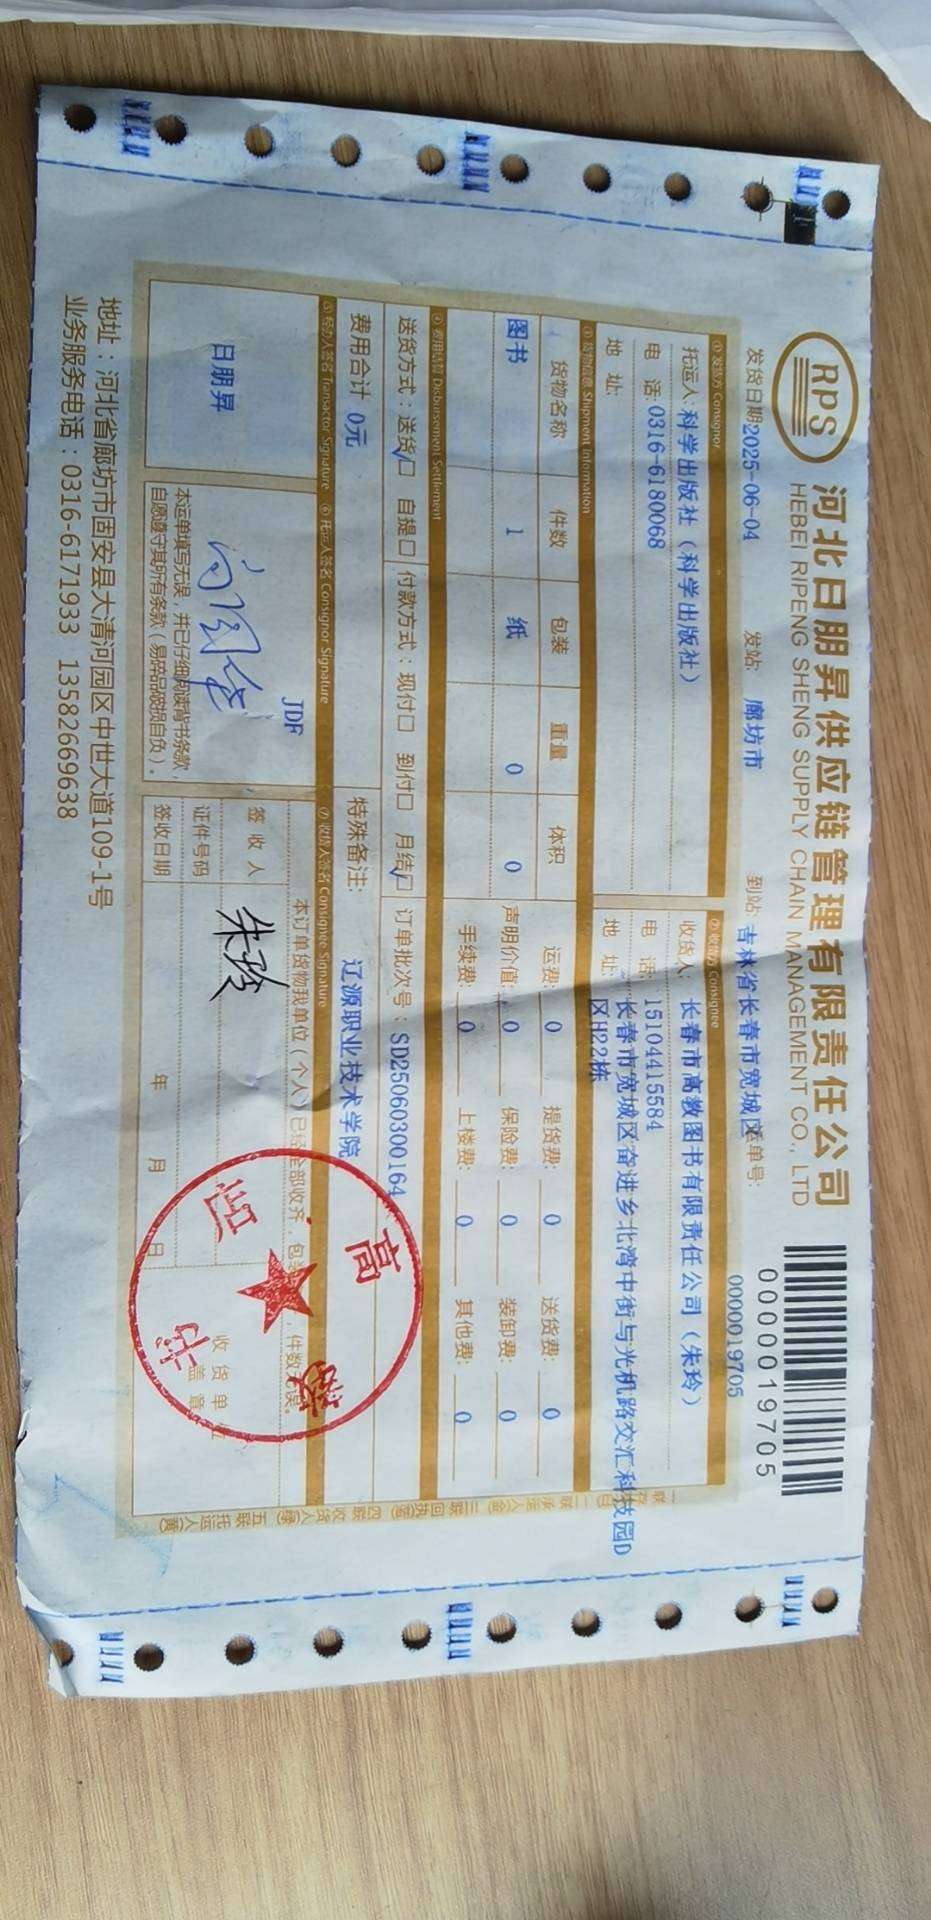 RPS
河北日朋昇供应链管理有限责任公司
HEBEI RIPENG SHENG SUPPLY CHAIN MANAGEMENT CO., LTD
0000019705
发货日期2025-06-04 发站: 廊坊市 到站: 吉林省长春市宽城区 运单号: 0000019705
① 发货方 Consignor ② 收货方 Consignee
托运人: 科学出版社（科学出版社） 收货人: 长春市高教图书有限责任公司（朱玲）
电 话: 0316-6180068 电 话: 15104415584
地 址: 地 址: 长春市宽城区奋进乡北湾中街与光机路交汇科技园D
区H22栋
③ 货物信息 Shipment Information
货物名称 件数 包装 重量 体积 运费: 0 提货费: 0 送货费: 0
图书 1 纸 0 0 声明价值: 0 保险费: 0 装卸费: 0
手续费: 0 上楼费: 0 其他费: 0
④ 费用结算 Disbursement Settlement
送货方式: 送货☑ 自提□ 付款方式: 现付□ 到付□ 月结☑ 订单批次号: SD25060300164
费用合计 0元 特殊备注: 辽源职业技术学院
⑤ 经办人签名 Transactor Signature ⑥ 托运人签名 Consignor Signature ⑦ 收货人签名 Consignee Signature
日朋昇
JDF
本运单填写无误，并已仔细阅读背书条款，
自愿遵守其所有条款（易碎品破损自负）。
本订单货物我单位（个人）已经全部收齐，包装 件数 误。
签 收 人 朱玲
证件号码
签收日期 年 月 日
收 货 单 位
盖 章
高 教
地址：河北省廊坊市固安县大清河园区中世大道109-1号
业务服务电话：0316-6171933 13582669638